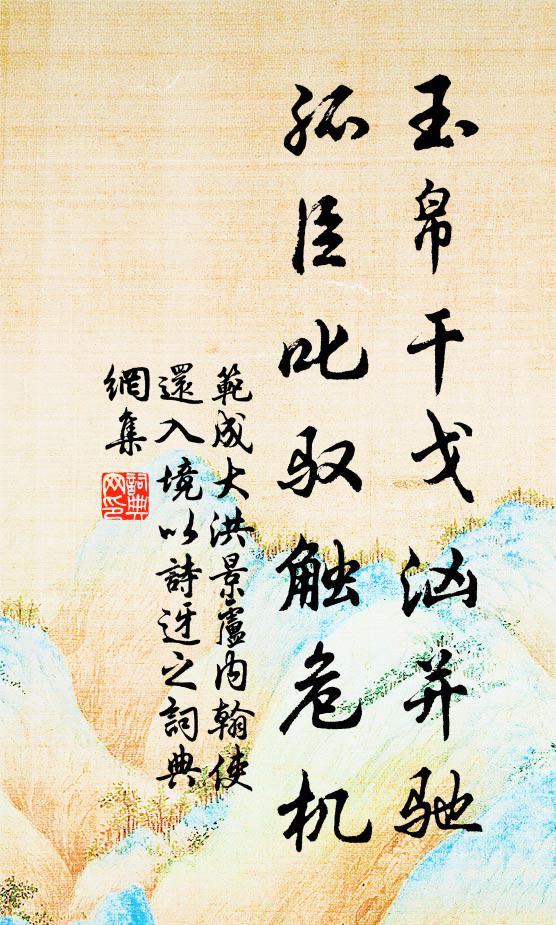 玉帛干戈汹并驰
孤臣叱驭触危机
範成大洪景盧内翰使
還入境以詩迓之詞典
網集
詞典
网印